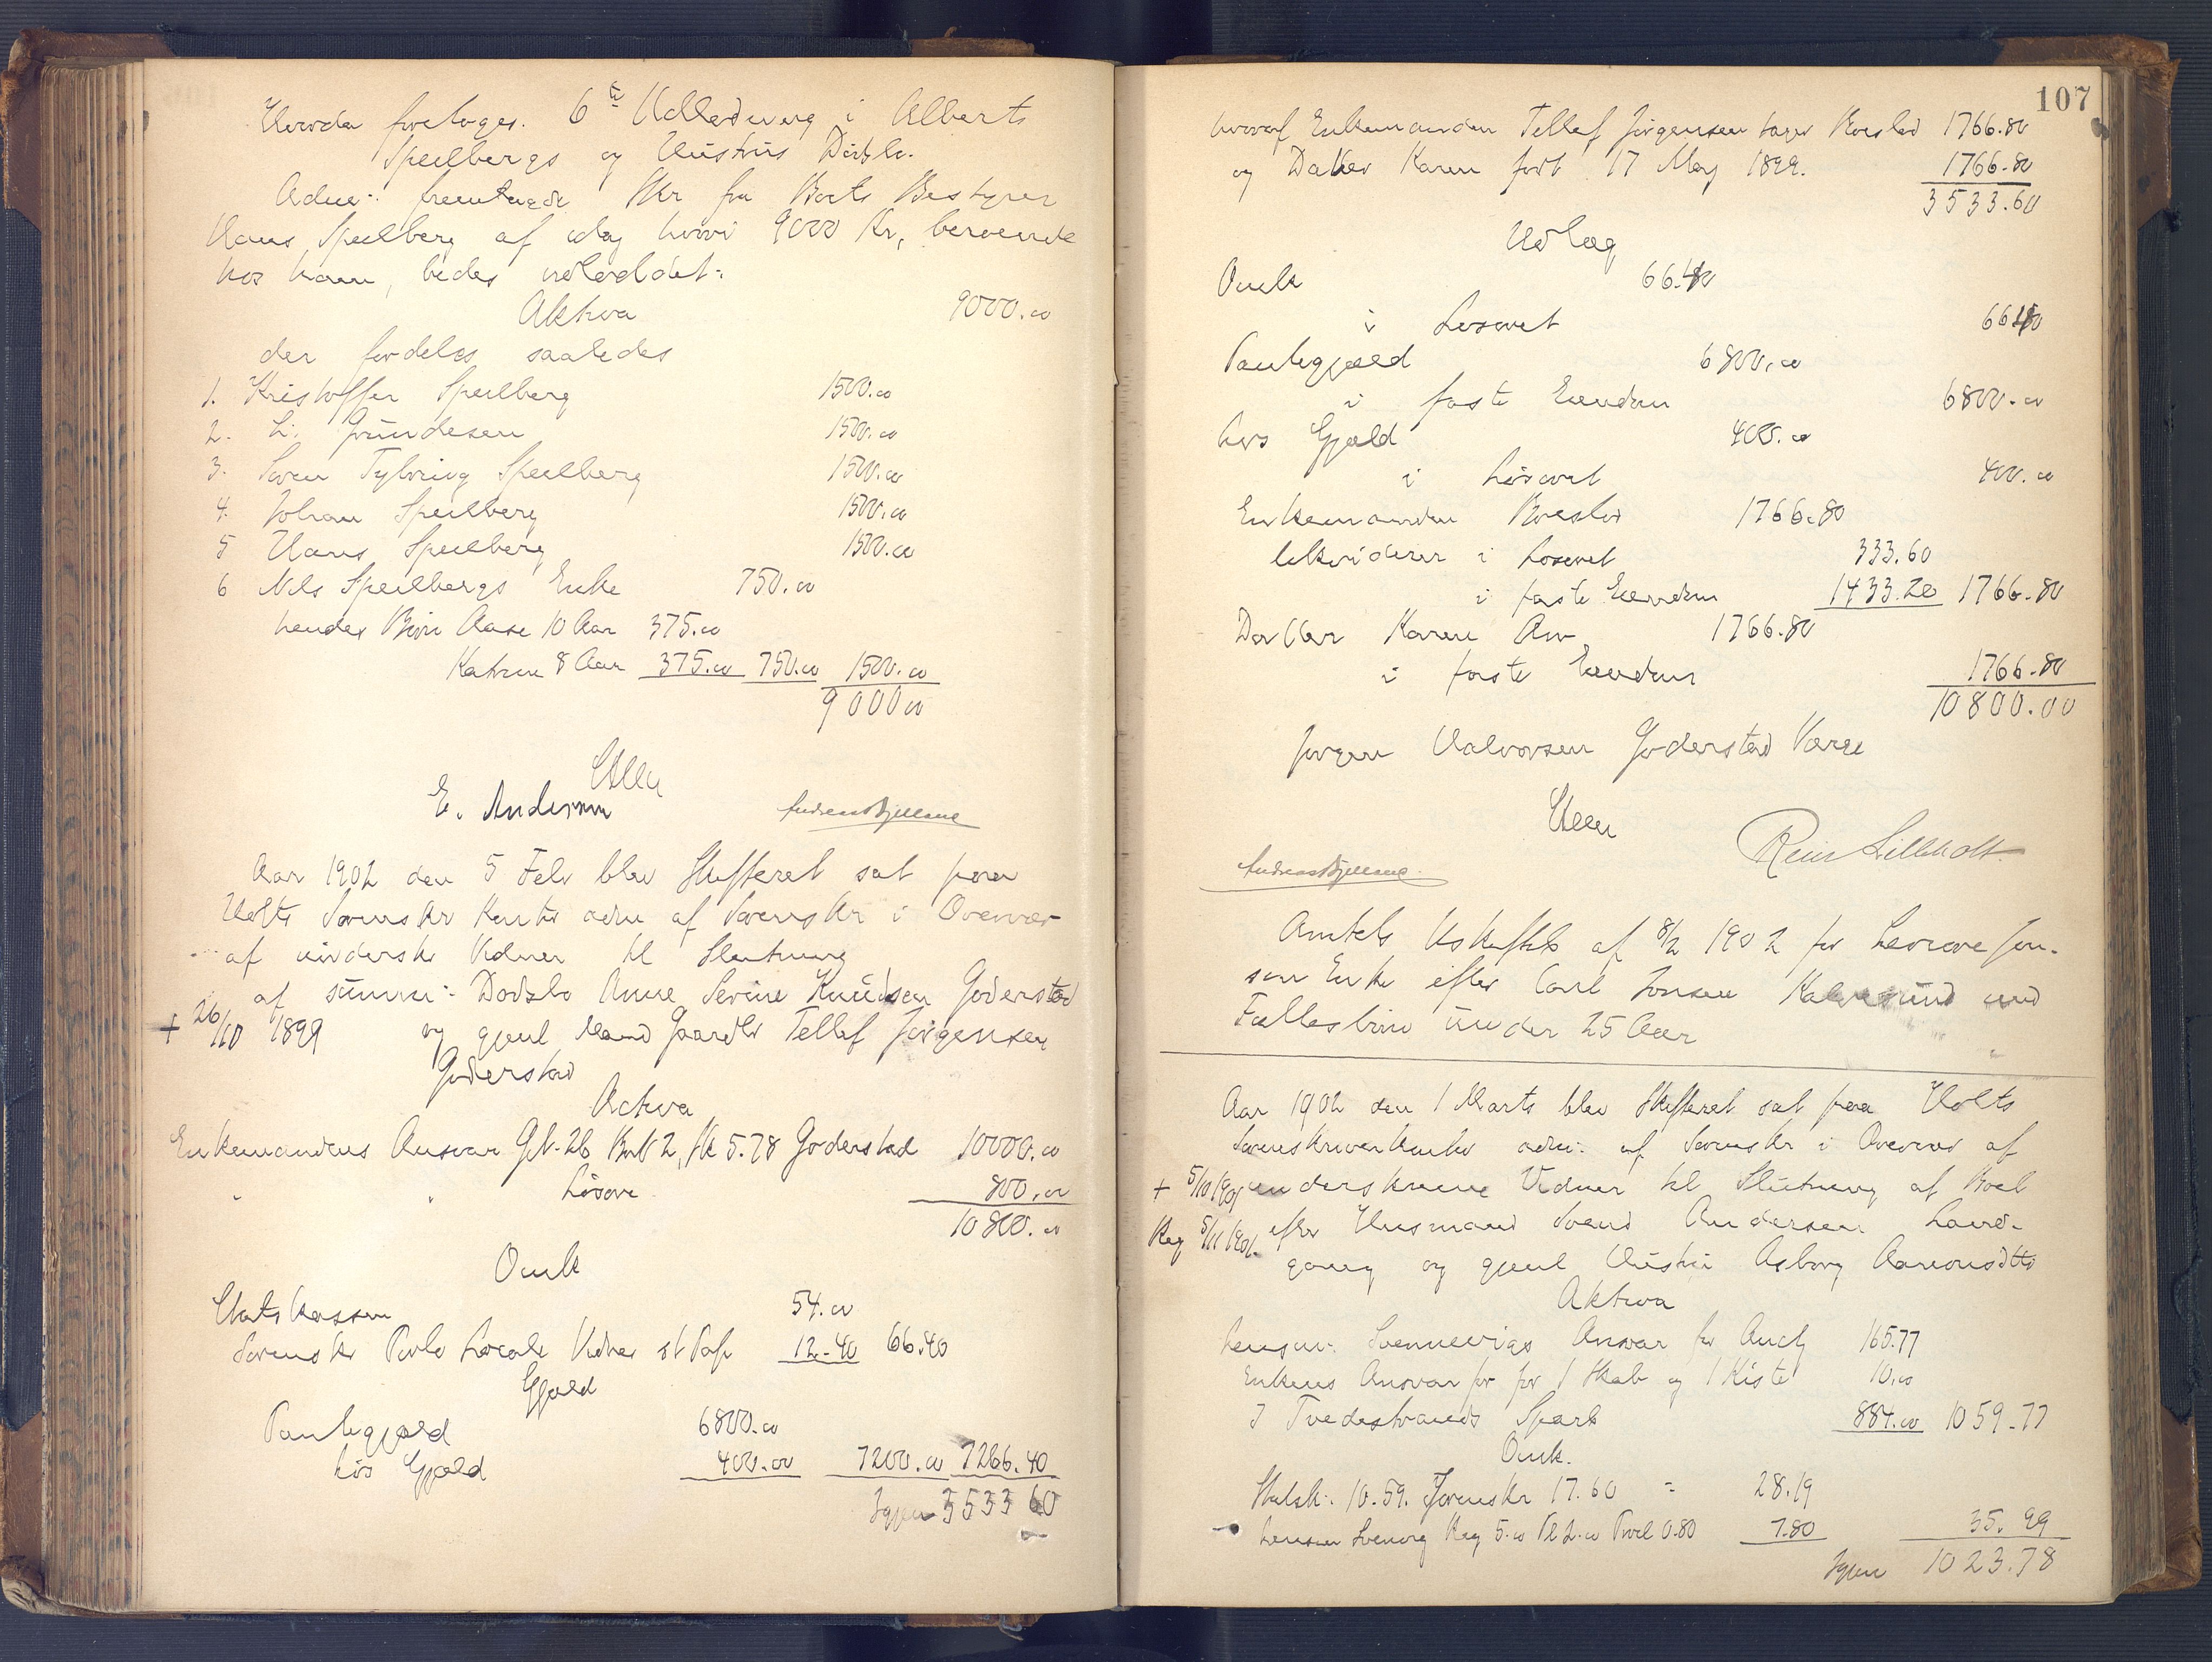 Hvorda foretoges 6te Udlodning i Alberts
Speilbergs og Hustrus Dødsbo.
Adm: fremlagde Skr fra Boets Bestyrer
Hans Speilberg af idag hvori 9000 Kr, beroende
hos ham, bedes udloddet:
Aktiva 9000.00
der fordeles saaledes
1. Kristoffer Speilberg 1500.00
2. L. Gundesen 1500.00
3. Søren Tybring Speilberg 1500.00
4. Johan Speilberg 1500.00
5 Hans Speilberg 1500.00
6 Nils Speilbergs Enke 750.00
hendes Børn Aase 10 Aar 375.00
Katrine 8 Aar 375.00 750.00 1500.00
9000 00
E. Andersen
Aar 1902 den 5 Feb blev Skifteret sat paa
Holts Sorenskr Kontor adm af Sorenskr i Overvær
af underskr Vidner til Slutning
af summ: Dødsbo Anne Serine Knudsen Goderstad
+ 26/10 1899 og gjenl Mand Gaardbr Tellef Jørgensen
Goderstad
Activa
Enkemandens Ansvar Gt. 26 Bt 2, Sk 5.78 Goderstad 10000.00
" " Løsøre 800.00
10800.00
Omk
Statskassen 54.00
Sorenskr Porto Locale Vidner st Pap 12.40 66.40
Gjæld
Pantegjæld 6800.00
Løs Gjæld 400.00 7200.00 7266.40
Igjen 3533 60
107
hvoraf Enkemanden Tellef Jørgensen tager Boeslod 1766.80
og Datter Karen født 17 May 1899. 1766.80
3533.60
Udlæg
Omk 66.40
i Løsøret 66.40
Pantegjæld 6800.00
i faste Eiendom 6800.00
Løs Gjæld 400.00
i Løsøret 400.00
Enkemanden Boeslod 1766.80
likviderer i Løsøret 333.60
i faste Eiendom 1433.20 1766.80
Datter Karen Arv 1766.80
i faste Eiendom 1766.80
10800.00
Jørgen Halvorsen Goderstad Værge
Amtets Uskiftet af 8/2 1902 for Leonore Jon-
sen Enke efter Carl Jonsen Kalvesund med
Fællesbørn under 25 Aar
Aar 1902 den 1 Marts blev Skifteret sat paa Holts
Sorenskriverkontor adm: af Sorenskr i Overvær af
+ 5/10 1901 underskrevne Vidner til Slutning af Boet
Reg 5/11 1901. efter Husmand Svend Andersen Land-
gang og gjenl Hustru Asborg Aanonsdtr
Aktiva
Lensm: Svennevigs Ansvar for Auct 165.77
Enkens Ansvar for for 1 Skab og 1 Kiste 10.00
I Tvedestrands Sparb 884.00 1059.77
Omk.
Statsk: 10.59. Sorenskr 17.60 = 28.19
Lensm Svennevig Reg 5.00 Pl 2.00 Proel 0.80 7.80 35.99
Igjen 1023.78